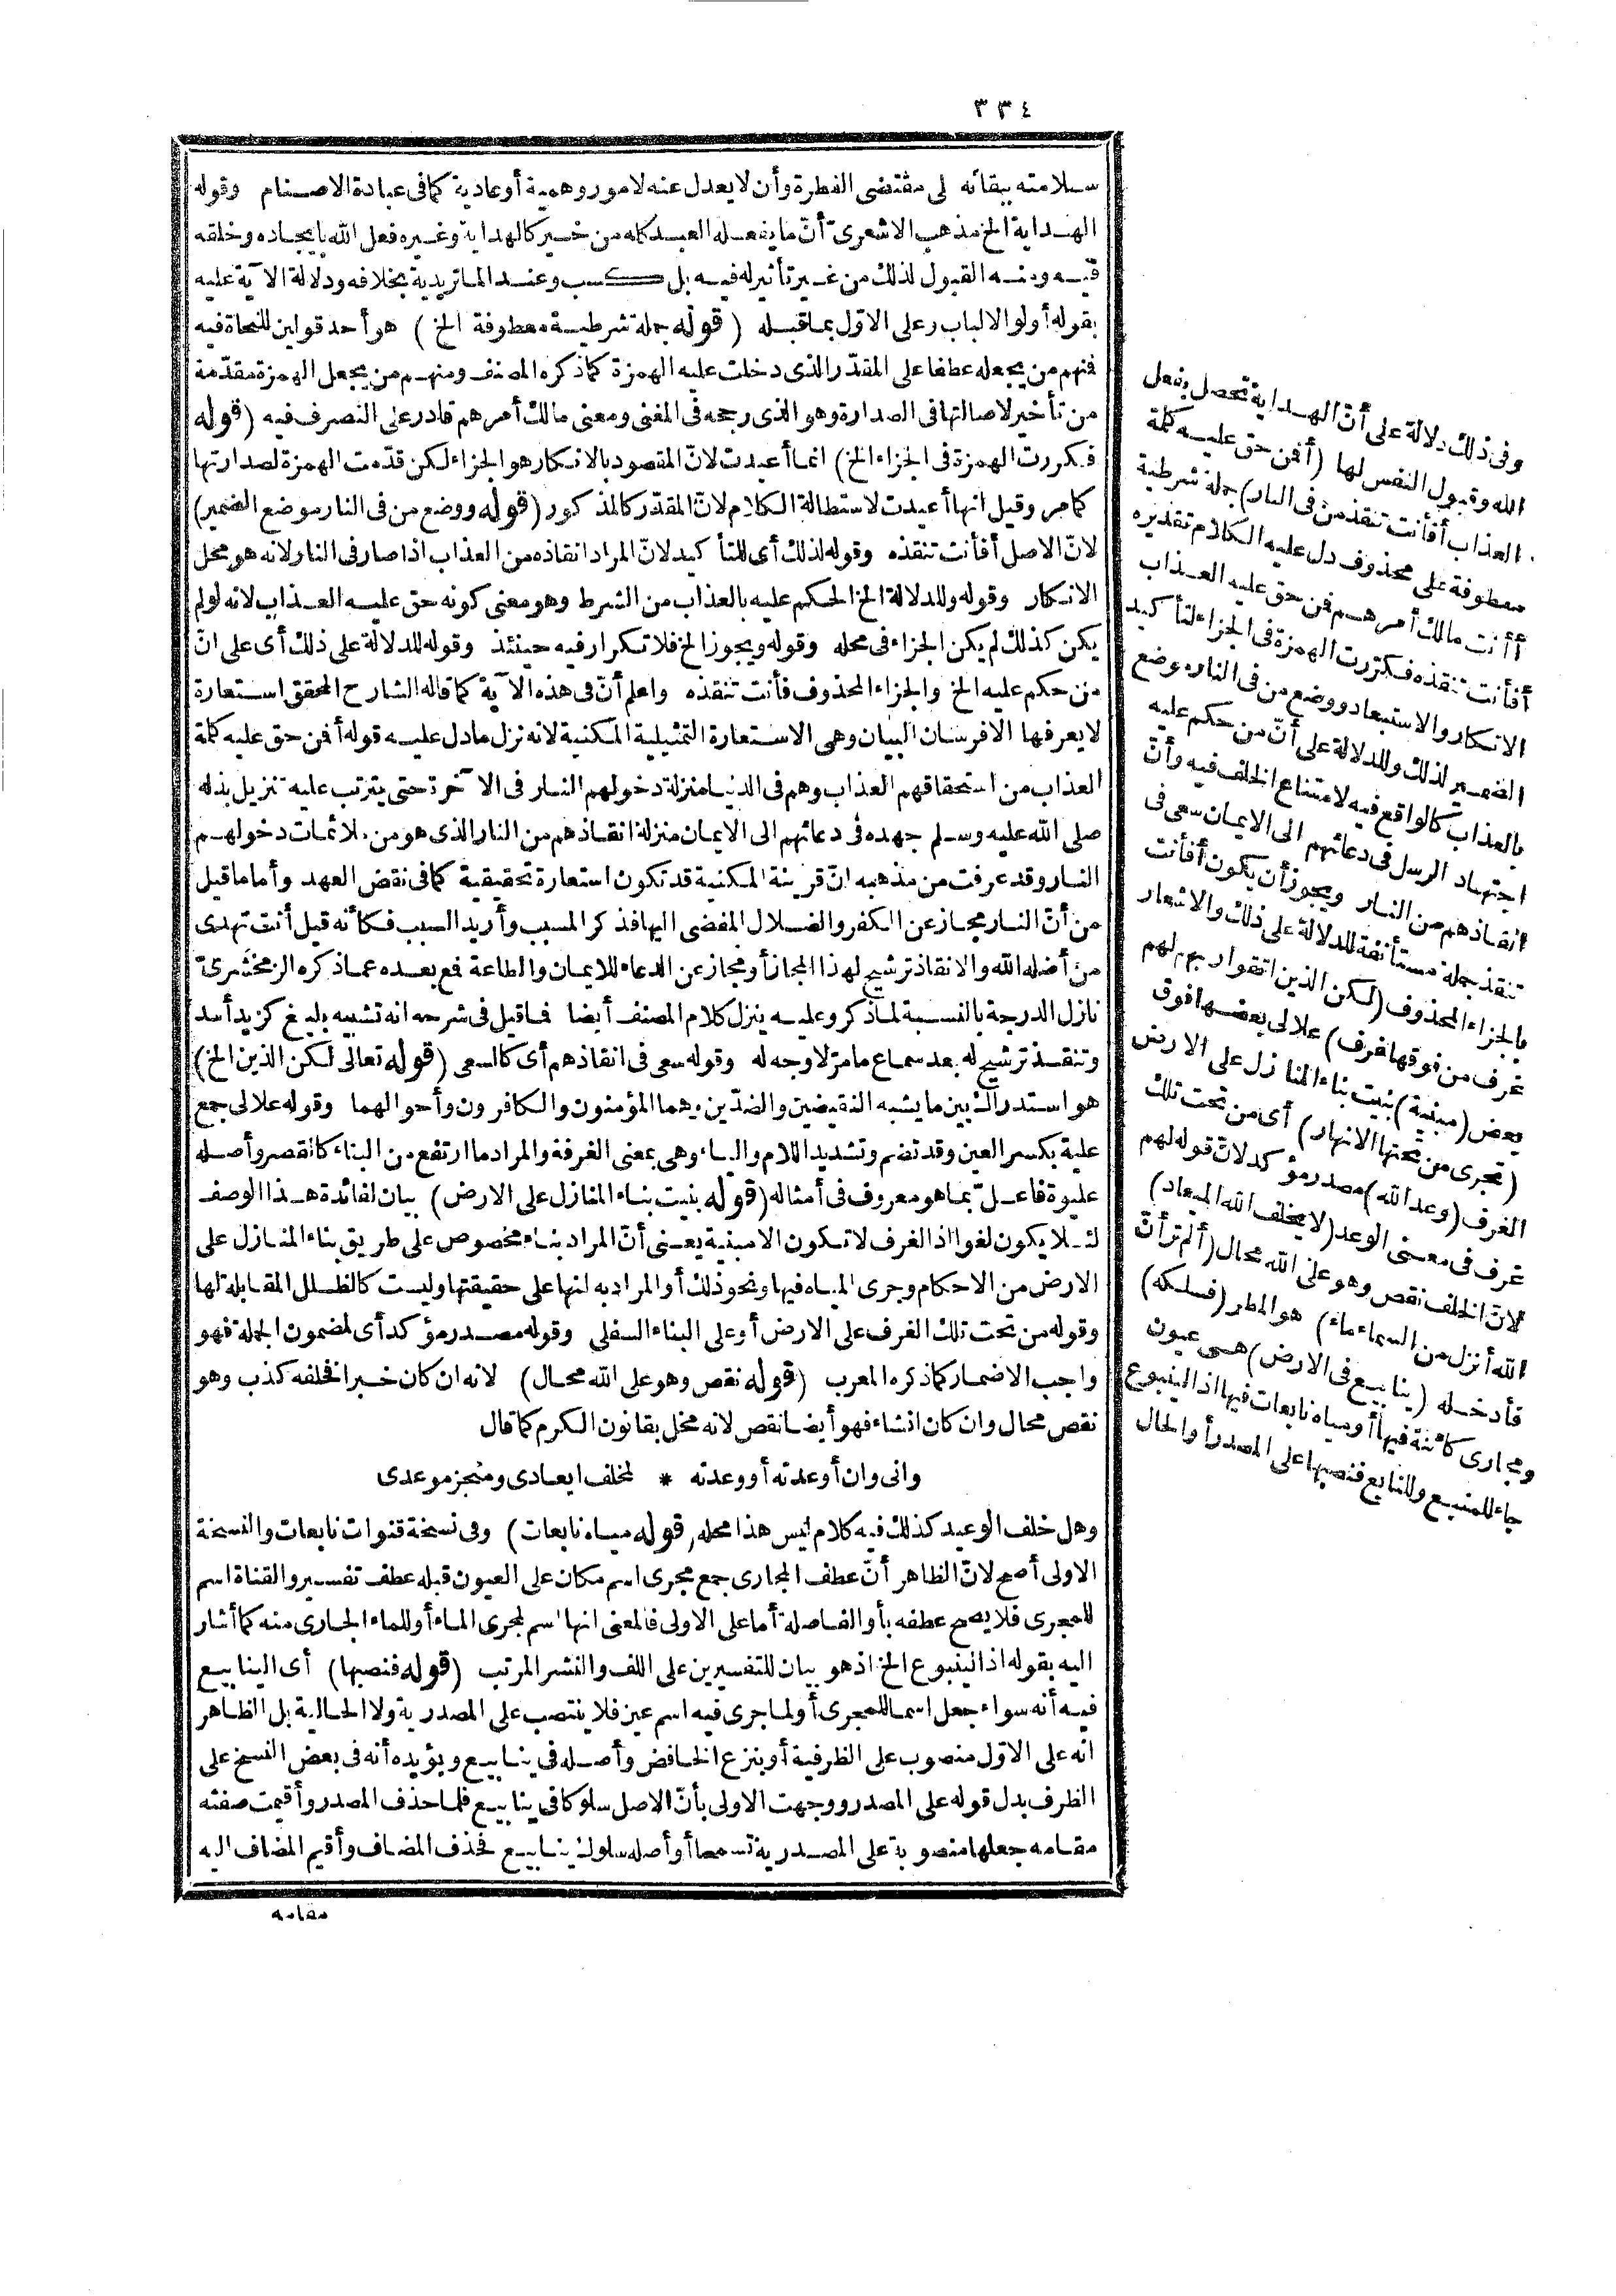 ٣٣٤
سلامته ببقائه على مقتضى الفطرة وأن لا يعدل عنه لامور وهمية أوعادية كما فى عبادة الاصنام وقوله
الهداية الخ مذهب الاشعرىّ أنّ ما يفعله العبد كله من خير كالهداية وغيره فعل الله بايجاده وخلقه
فيه ومنه القبول لذلك من غير تأثير له فيه بل كسب وعند الماتريدية بخلافه ودلالة الآية عليه
بقوله أولو الالباب وعلى الاوّل بما قبله (قوله جملة شرطية معطوفة الخ) هو أحد قولين للنحاة فيه
فمنهم من يجعله عطفا على المقدّر الذى دخلت عليه الهمزة كما ذكره المصنف ومنهم من يجعل الهمزة مقدّمة
من تأخير لاصالتها فى الصدارة وهو الذى رجحه فى المغنى ومعنى مالك أمرهم قادر على التصرف فيه (قوله
فكررت الهمزة فى الجزاء الخ) انما أعيدت لانّ المقصود بالانكار هو الجزاء لكن قدّمت الهمزة لصدارتها
كما مر وقيل انها أعيدت لاستطالة الكلام لانّ المقدّر كالمذكور (قوله ووضع من فى النار موضع الضمير)
لانّ الاصل أفأنت تنقذه وقوله لذلك أى للتأكيد لانّ المراد انقاذه من العذاب اذا صار فى النار لانه هو محل
الانكار وقوله وللدلالة الخ الحكم عليه بالعذاب من الشرط وهو معنى كونه حق عليه العذاب لانه لو لم
يكن كذلك لم يكن الجزاء فى محله وقوله ويجوز الخ فلا تكرار فيه حينئذ وقوله للدلالة على ذلك أى على انّ
من حكم عليه الخ والجزاء المحذوف فأنت تنقذه واعلم أنّ فى هذه الآية كما قاله الشارح المحقق استعارة
لا يعرفها الا فرسان البيان وهى الاستعارة التمثيلية المكنية لانه نزل ما دل عليه قوله أفمن حق عليه كلمة
العذاب من استحقاقهم العذاب وهم فى الدنيا منزلة دخولهم النار فى الآخرة حتى يترتب عليه تنزيل بذله
صلى الله عليه وسلم جهده فى دعائهم الى الايمان منزلة انقاذهم من النار الذى هو من ملائمات دخولهم
النار وقد عرفت من مذهبه انّ قرينة المكنية قد تكون استعارة تحقيقية كما فى نقض العهد وأما ما قيل
من أنّ النار مجاز عن الكفر والضلال المفضى اليها فذكر المسبب وأريد السبب فكأنه قيل أنت تهدى
من أضله الله والانقاذ ترشيح لهذا المجاز أو مجاز عن الدعاء للايمان والطاعة فمع بعده عما ذكره الزمخشرىّ
نازل الدرجة بالنسبة لما ذكر وعليه ينزل كلام المصنف أيضا فما قيل فى شرحه انه تشبيه بليغ كزيد أسد
وتنقذ ترشيح له بعد سماع ما مرّ لا وجه له وقوله سعى فى انقاذهم أى كالسعى (قوله تعالى لكن الذين الخ)
هو استدراك بين ما يشبه النقيضين والضدّين وهما المؤمنون والكافرون وأحوالهما وقوله علالى جمع
علية بكسر العين وقد تضم وتشديد اللام والياء وهى بمعنى الغرفة والمراد ما ارتفع من البناء كالقصر وأصله
عليوة فاعلّ بما هو معروف فى أمثاله (قوله بنيت بناء المنازل على الارض) بيان لفائدة هذا الوصف
لئلا يكون لغوا اذ الغرف لا تكون الا مبنية يعنى أنّ المراد بناء مخصوص على طريق بناء المنازل على
الارض من الاحكام وجرى المياه فيها ونحو ذلك أو المراد به انها على حقيقتها وليست كالظلل المقابلة لها
وقوله من تحت تلك الغرف على الارض أو على البناء السفلى وقوله مصدر مؤكد أى لمضمون الجملة فهو
واجب الاضمار كما ذكره المعرب (قوله نقص وهو على الله محال) لانه ان كان خبرا فخلفه كذب وهو
نقص محال وان كان انشاء فهو أيضا نقص لانه مخل بقانون الكرم كما قال
وانى وان أوعدته أووعدته * لمخلف ايعادى ومنجز موعدى
وهل خلف الوعيد كذلك فيه كلام ليس هذا محله (قوله مياه نابعات) وفى نسخة قنوات نابعات والنسخة
الاولى أصح لانّ الظاهر أنّ عطف المجارى جمع مجرى اسم مكان على العيون قبله عطف تفسير والقناة اسم
للمجرى فلا يصح عطفه بأو الفاصلة أما على الاولى فالمعنى انها اسم لمجرى الماء أو للماء الجارى منه كما أشار
اليه بقوله اذ الينبوع الخ اذ هو بيان للتفسيرين على اللف والنشر المرتب (قوله فنصبها) أى الينابيع
فيه أنه سواء جعل اسما للمجرى أو لما جرى فيه اسم عين فلا ينتصب على المصدرية ولا الحالية بل الظاهر
انه على الاوّل منصوب على الظرفية أو بنزع الخافض وأصله فى ينابيع ويؤيده أنه فى بعض النسخ على
الظرف بدل قوله على المصدر ووجهت الاولى بأنّ الاصل سلوكا فى ينابيع فلما حذف المصدر وأقيمت صفته
مقامه جعلها منصوبة على المصدرية تسمحا أو أصله سلوك ينابيع فحذف المضاف وأقيم المضاف اليه
مقامه
وفى ذلك دلالة على أنّ الهداية تحصل بفعل
الله وقبول النفس لها (أفمن حق عليه كلمة
العذاب أفأنت تنقذ من فى النار) جملة شرطية
معطوفة على محذوف دل عليه الكلام تقديره
أأنت مالك أمرهم فمن حق عليه العذاب
أفأنت تنقذه فكرّرت الهمزة فى الجزاء لتأكيد
الانكار والاستبعاد ووضع من فى النار موضع
الضمير لذلك وللدلالة على أنّ من حكم عليه
بالعذاب كالواقع فيه لامتناع الخلف فيه وأنّ
اجتهاد الرسل فى دعائهم الى الايمان سعى فى
انقاذهم من النار ويجوز أن يكون أفأنت
تنقذ جملة مستأنفة للدلالة على ذلك والاشعار
بالجزاء المحذوف (لكن الذين اتقوا ربهم لهم
غرف من فوقها غرف) علالى بعضها فوق
بعض (مبنية) بنيت بناء المنازل على الارض
(تجرى من تحتها الانهار) أى من تحت تلك
الغرف (وعد الله) مصدر مؤكد لانّ قوله لهم
غرف فى معنى الوعد (لا يخلف الله الميعاد)
لانّ الخلف نقص وهو على الله محال (ألم تر أنّ
الله أنزل من السماء ماء) هو المطر (فسلكه)
فأدخله (ينابيع فى الارض) هى عيون
ومجارى كائنة فيها أو مياه نابعات فيها اذ الينبوع
جاء للمنبع وللنابع فنصبها على المصدر أو الحال